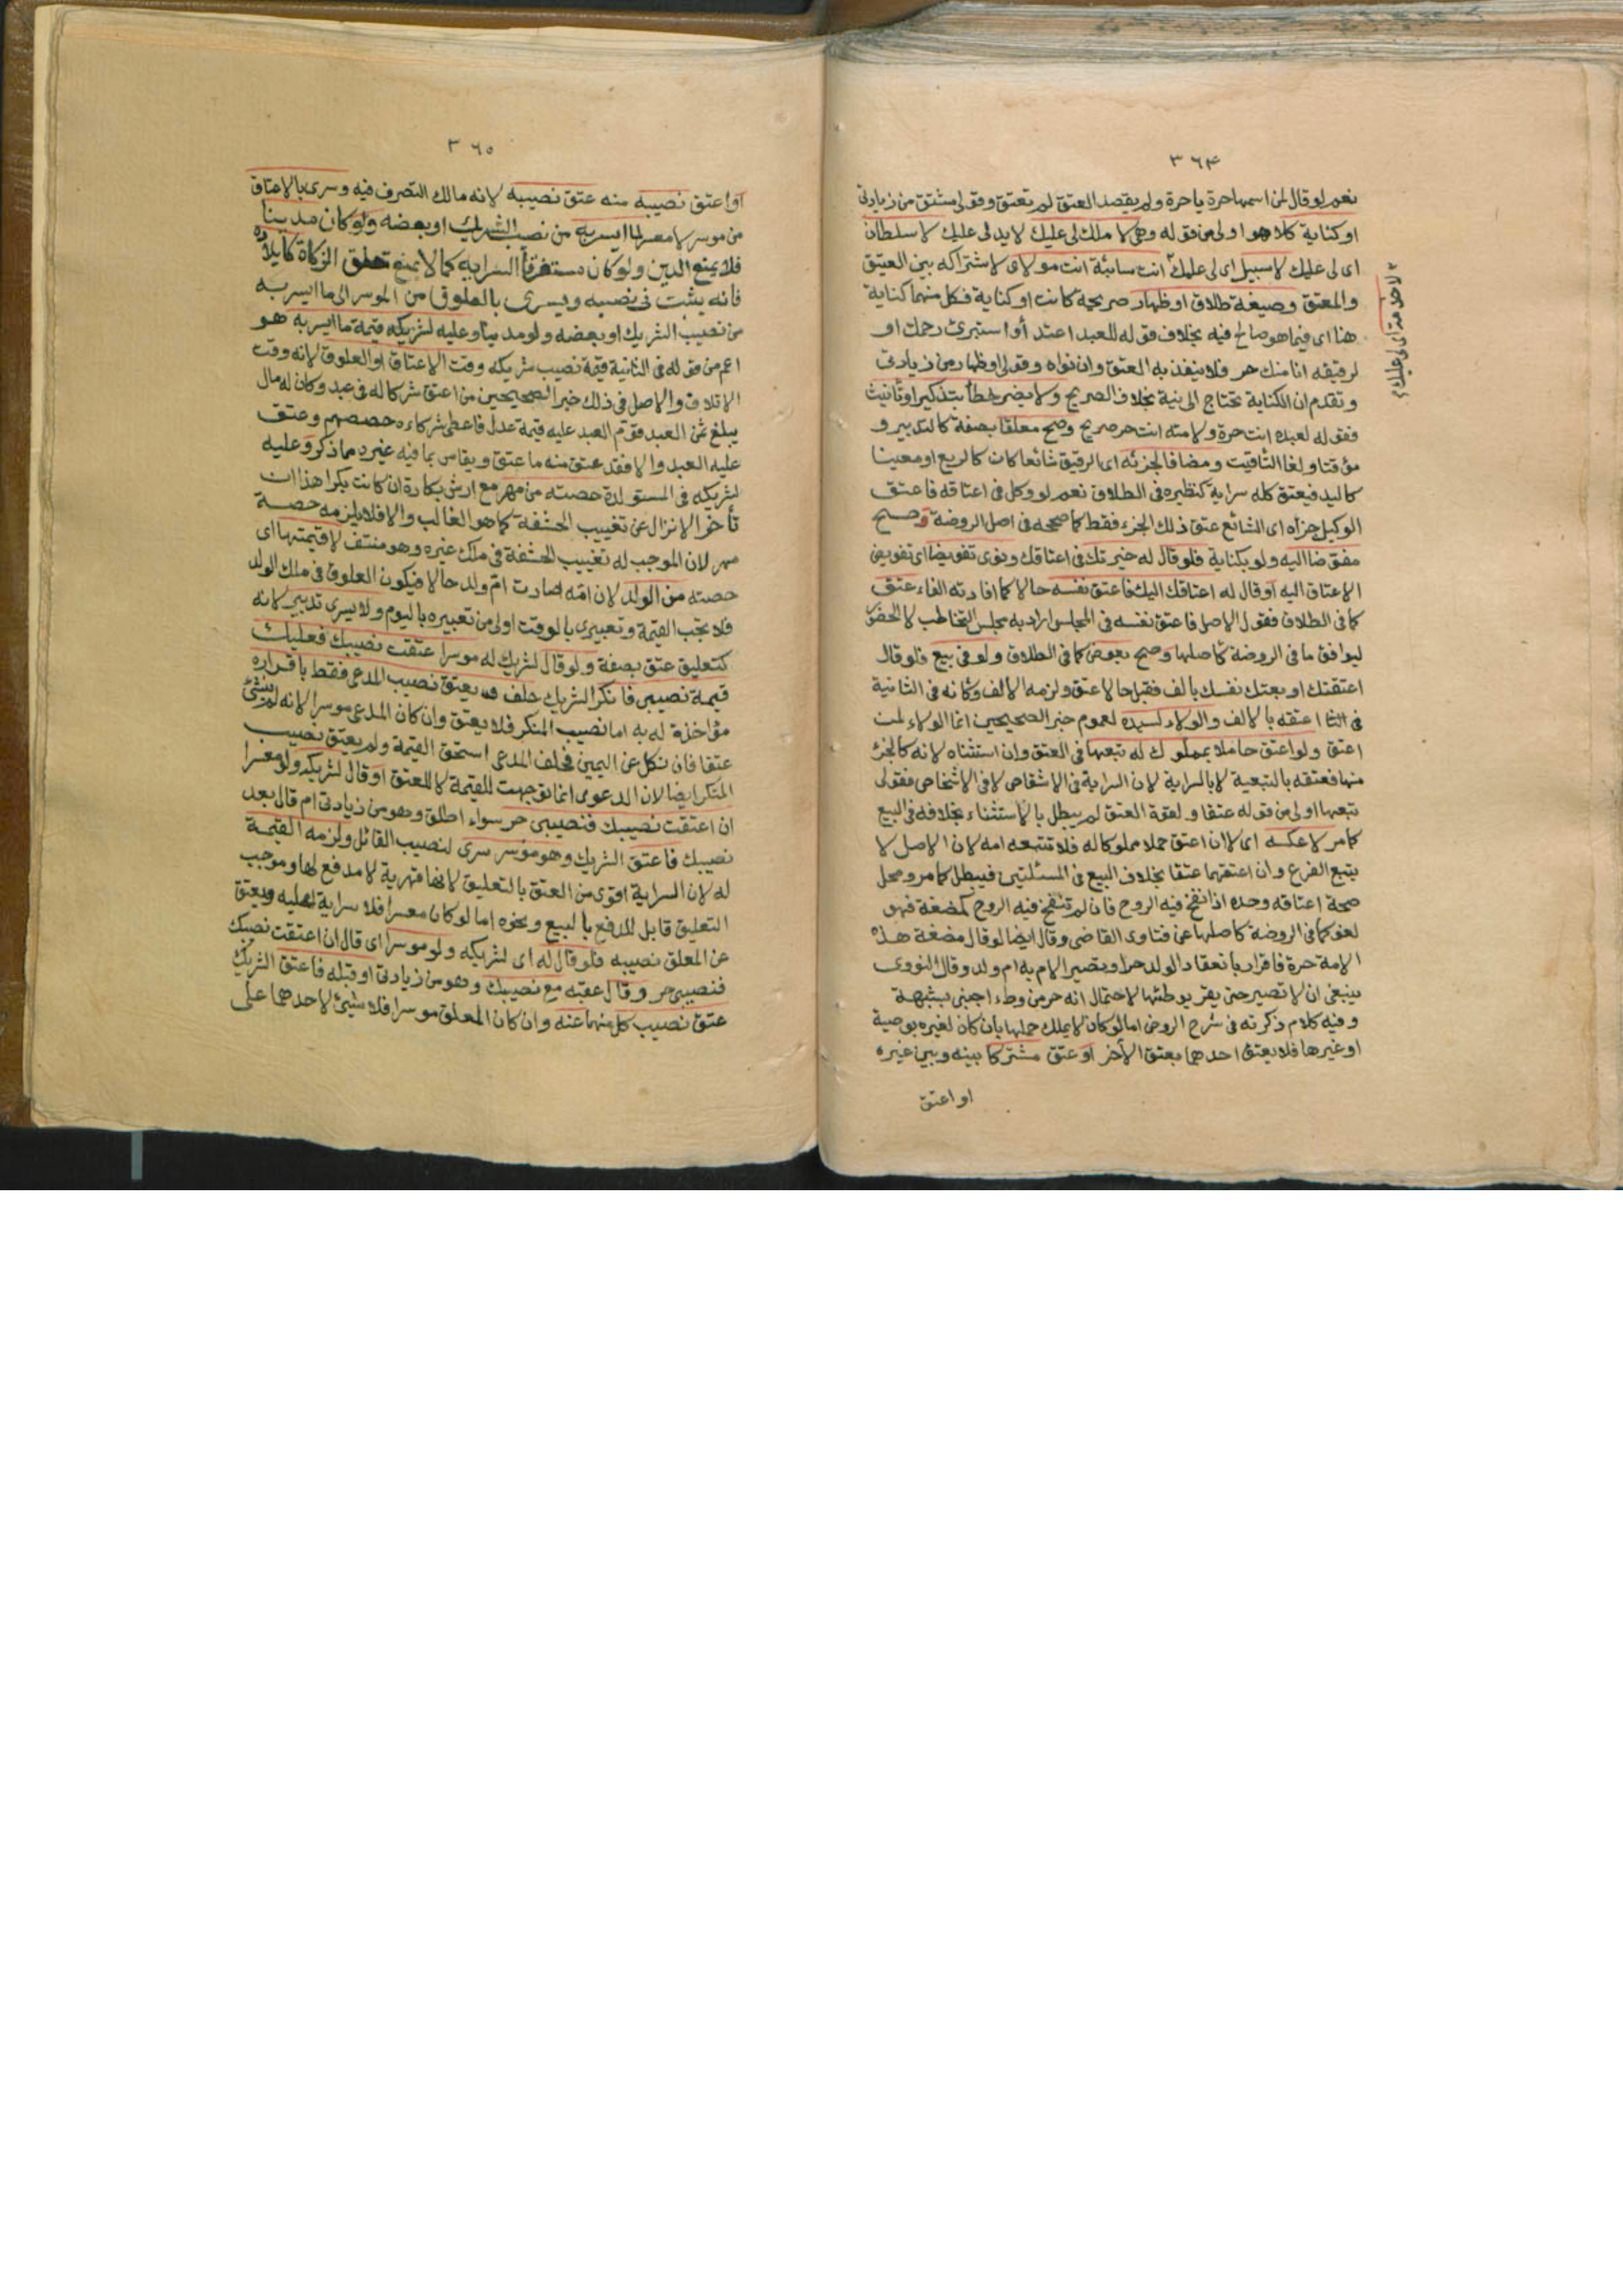 ٣٦٤
نعم لو قال لمن اسمها حرة يا حرة ولم يقصد العتق لم تعتق وقولي مشتق من زيادتي
او كناية كلا هو اولى من قوله وهي لا ملك لي عليك لا يد لي عليك لا سلطان
اى لي عليك لا سبيل اى لي عليك انت سائبة انت مولاى لاشتراكه بين العتيق
والمعتق وصيغة طلاق او ظهار صريحة كانت او كناية فكل منهما كناية
هنا اى فيما هو صالح فيه بخلاف قوله للعبد اعتد أو استبرئ رحمك او
لرقيقه انا منك حر فلا ينفذ به العتق وان نواه وقولي او ظهار من زيادتي
وتقدم ان الكناية تحتاج الى نية بخلاف الصريح ولا يضر خطأ بتذكير او تأنيث
فقوله لعبده انت حرة ولامته انت حر صريح وصح معلقا بصفة كالتدبير و
مؤقتا ولغا التاقيت ومضافا لجزئه اى الرقيق شائعا كان كالربع او معينا
كاليد فيعتق كله سراية كنظيره فى الطلاق نعم لو وكل فى اعتاقه فاعتق
الوكيل جزأه اى الشائع عتق ذلك الجزء فقط كما صححه فى اصل الروضة وصح
مفوضا اليه ولو بكناية فلو قال له خيرتك فى اعتاقك ونوى تفويضا اى تفويض
الاعتاق اليه او قال له اعتاقك اليك فاعتق نفسه حالا كما افادته الفاء عتق
كما فى الطلاق فقول الاصل فاعتق نفسه فى المجلس اراد به مجلس التخاطب لا الحضور
ليوافق ما فى الروضة كاصلها وصح بعوض كما فى الطلاق ولو فى بيع فلو قال
اعتقتك او بعتك نفسك بالف فقبل حالا عتق ولزمه الالف وكانه فى الثانية
اعتقه بالالف والولاء لسيده لعموم خبر الصحيحين انما الولاء لمن
اعتق ولو اعتق حاملا بمملوك له تبعها فى العتق وان استثناه لانه كالجزء
منها فعتقه بالتبعية لا بالسراية لان السراية فى الاشقاص لا فى الاشخاص فقولى
تبعها اولى من قوله عتقا ولقوة العتق لم يبطل بالاستثناء بخلافه فى البيع
كما مر لا عكسه اى لا ان اعتق حملا مملوكا له فلا تتبعه امه لان الاصل لا
يتبع الفرع وان اعتقهما عتقا بخلاف البيع فى المسئلتين فيبطل كما مر ومحل
صحة اعتاقه وحده اذا نفخ فيه الروح فان لم تنفخ فيه الروح كمضغة فهو
لغو كما فى الروضة كاصلها عن فتاوى القاضى وقال ايضا لو قال مضغة هذه
الامة حرة فاقرار بانعقاد الولد حرا وتصير الام به ام ولد وقال النووى
ينبغى ان لا تصير حتى يقر بوطئها لاحتمال انه حر من وطء اجنبى بشبهة
وفيه كلام ذكرته فى شرح الروض اما لو كان لا يملك حملها بان كان لغيره بوصية
او غيرها فلا يعتق احدهما بعتق الآخر او عتق مشتركا بينه وبين غيره
او اعتق
٣٦٥
او اعتق نصيبه منه عتق نصيبه لانه مالك التصرف فيه وسرى بالاعتاق
من موسر لا معسر لما ايسر به من نصيب الشريك او بعضه ولو كان مدينا
فلا يمنع الدين ولو كان مستغرقا السراية كما لا يمنع تعلق الزكاة كايلاده
فانه يثبت فى نصيبه ويسرى بالعلوق من الموسر الى ما ايسر به
من نصيب الشريك او بعضه ولو مدينا وعليه لشريكه قيمة ما ايسر به هو
اعم من قوله فى الثانية قيمة نصيب شريكه وقت الاعتاق او العلوق لانه وقت
الاتلاف والاصل فى ذلك خبر الصحيحين من اعتق شركا له فى عبد وكان له مال
يبلغ ثمن العبد قوم العبد عليه قيمة عدل فاعطى شركاءه حصصهم وعتق
عليه العبد والا فقد عتق منه ما عتق ويقاس بما فيه غيره مما ذكر وعليه
لشريكه فى المستولدة حصته من مهر مع ارش بكارة ان كانت بكرا هذا ان
تأخر الانزال عن تغييب الحشفة كما هو الغالب والا فلا يلزمه حصة
مهر لان الموجب له تغييب الحشفة فى ملك غيره وهو منتف لا قيمتها اى
حصته من الولد لان امه صارت ام ولد حالا فيكون العلوق فى ملك الولد
فلا تجب القيمة وتعبيرى بالوقت اولى من تعبيره باليوم ولا يسرى تدبير لانه
كتعليق عتق بصفة ولو قال لشريك له موسر اعتقت نصيبك فعليك
قيمة نصيبى فانكر الشريك حلف ويعتق نصيب المدعى فقط باقراره
مؤاخذة له به اما نصيب المنكر فلا يعتق وان كان المدعى موسرا لانه لم ينشئ
عتقا فان نكل عن اليمين فحلف المدعى استحق القيمة ولم يعتق نصيب
المنكر ايضا لان الدعوى انما توجهت للقيمة لا للعتق او قال لشريكه ولو معسرا
ان اعتقت نصيبك فنصيبى حر سواء اطلق وهو من زيادتى ام قال بعد
نصيبك فاعتق الشريك وهو موسر سرى لنصيب القائل ولزمه القيمة
له لان السراية اقوى من العتق بالتعليق لانها قهرية لا مدفع لها وموجب
التعليق قابل للدفع بالبيع ونحوه اما لو كان معسرا فلا سراية عليه ويعتق
عن المعلق نصيبه فلو قال له اى لشريكه ولو موسرا اى قال ان اعتقت نصيبك
فنصيبى حر وقال عقبه مع نصيبك وهو من زيادتى او قبله فاعتق الشريك
عتق نصيب كل منهما عنه وان كان المعلق موسرا فلا شيئ لاحدهما على